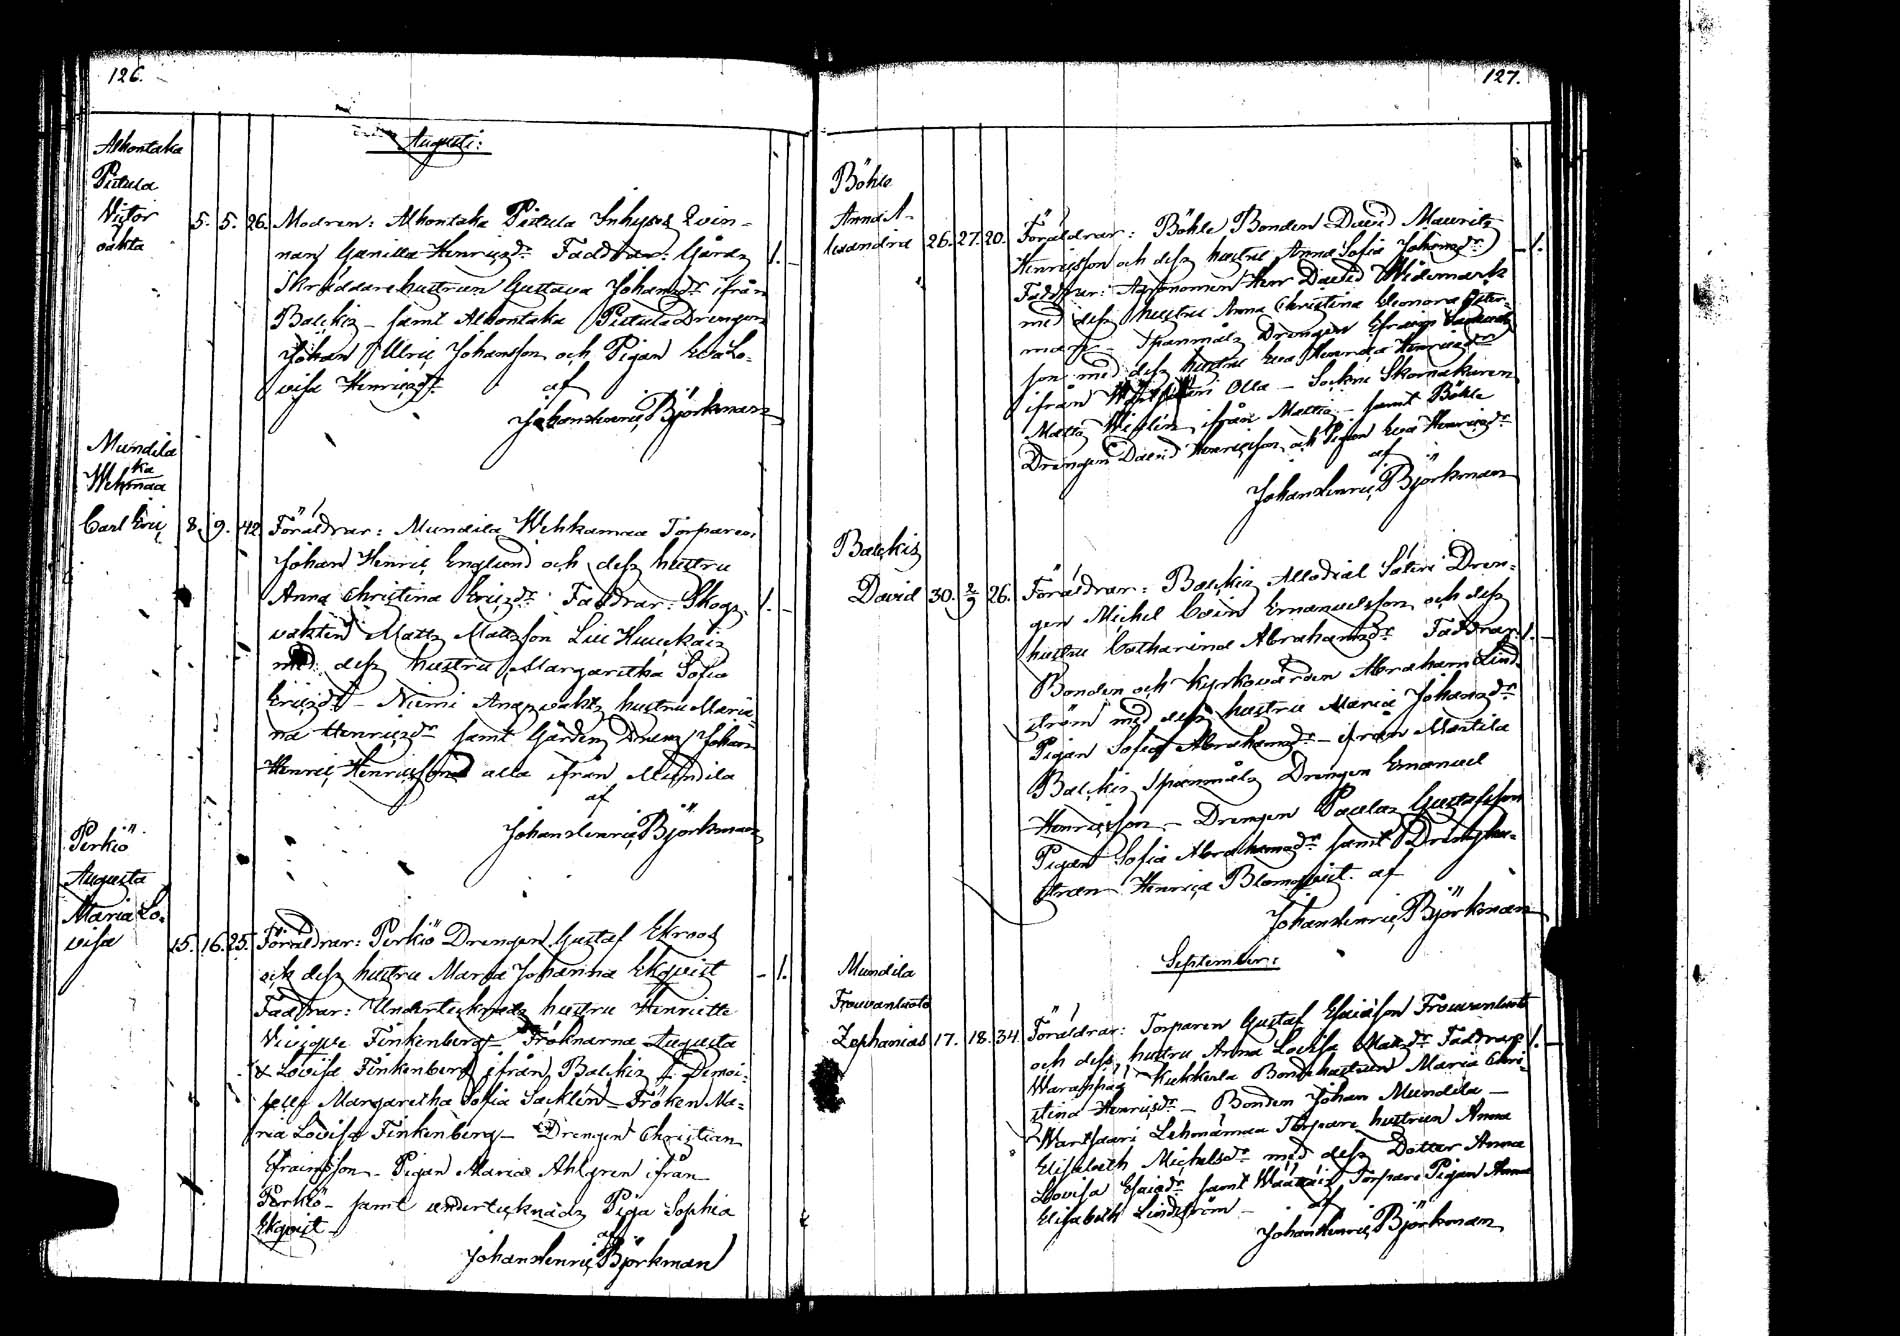 126.
Augusti:
Alhontaka
Pietula
Victor
oäkta
5. 5. 26. Modren: Alhontaka Pietula Inhyses Qvin-
nan Gunilla Henricsdr Faddrar: Gårds
Skräddarehustrun Gustava Johansdr ifrån
Balckis – samt Alhontaka Pietula Drengen
Johan Ulric Johansson och Pigan Eva Lo-
visa Henricsdr
af
Johan Henric Björkman
1.
Mundila
Wehka
maa
Carl Eric
8. 9. 42 Föräldrar: Mundila Wehkamaa Torparen
Johan Henric Englund och dess hustru
Anna Christina Ericsdr Faddrar: Skogs-
vakten Matts Mattsson
med dess hustru Margaretha Sofia
Ericsdr – Niemi hustru Maria-
na Henricsdr samt Gårdens Dreng Johan
Henric Henricsson alla ifrån Mundila
af
Johan Henric Björkman
1.
Perkiö
Augusta
Maria Lo-
visa
15. 16. 25. Föräldrar: Perkiö Drengen Gustaf Ekroos
och dess hustru Maria Johanna Ekqvist
Faddrar: Undertecknads hustru Henriette
Vivique Finkenberg – Fröknarna Augusta
& Lovisa Finkenberg ifrån Balckis – Demoi-
selle Margaretha Sofia Sacklén – Fröken Ma-
ria Lovisa Finkenberg – Drengen Christian
Efraimsson – Pigan Maria Ahlgren ifrån
Perkiö – samt undertecknads Piga Sophia
Ekqvist –
af
Johan Henric Björkman
1.
127.
Böhle
Anna A-
lexandra
26. 27. 20. Föräldrar: Böhle Bonden David Mauritz
Henricsson och dess hustru Anna Sofia Johansdr
Faddrar: Agronomen Herr David Widemark
med dess hustru Anna Christina Eleonora Öster-
man – Spanmåls Drengen Efraim
son med dess hustru Eva Henrica Henricsdr
ifrån Olla – Sockne Skomakaren
Matts Wiglin ifrån Mattis – samt Böhle
Drengen David Henricsson och Pigan Eva Henricsdr
af
Johan Henric Björkman
1.
Balckis
David
30. 2/9 26. Föräldrar: Balckis Allodial Säteri Dren-
gen Michel Edvin Emanuelsson och dess
hustru Catharina Abrahamsdr Faddrar:
Bonden och Kyrkovärden Abraham Lind-
ström med dess hustru Maria Johansdr
Pigan Sofia Abrahamsdr – ifrån Martila
Balckis Spanmåls Drengen Emanuel
Henricsson – Drengen Paulus Gustafsson
Pigan Sofia Abrahamsdr samt Drenghu-
strun Henrica Blomqvist. af
Johan Henric Björkman
1.
September:
Mundila
Frouvanluoto
Zephanias
17. 18. 34. Föräldrar: Torparen Gustaf Esaiasson Frouvanluoto
och dess hustru Anna Lovisa Mattsdr Faddrar:
Warappää Kukkerla Bondehustrun Maria Chri-
stina Henricsdr – Bonden Johan Mundila –
Wartsaari Lehmämaa Torpare hustrun Anna
Elisabeth Michelsdr med dess Dotter Anna
Lovisa Esaiedr samt Torpare Pigan Anna
Elisabeth Lindström –
af
Johan Henric Björkman
1.